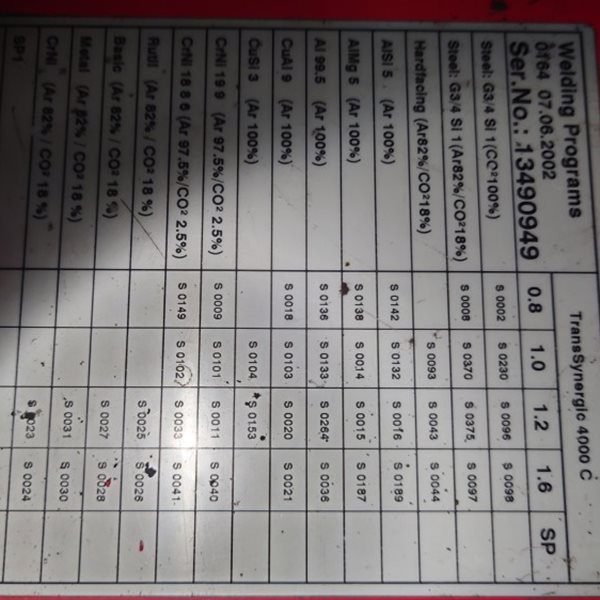 Welding Programs TransSynergic 4000 C
ÖT64 07.06.2002
Ser.No.: 13490949 0.8 1.0 1.2 1.6 SP
Steel: G3/4 Si 1(CO²100%) S 0002 S 0230 S 0096 S 0098
Steel: G3/4 Si 1(Ar82%/CO²18%) S 0008 S 0370 S 0375 S 0097
Hardfacing (Ar82%/CO²18%) S 0093 S 0043 S 0044
AlSi 5 (Ar 100%) S 0142 S 0132 S 0016 S 0189
AlMg 5 (Ar 100%) S 0138 S 0014 S 0015 S 0187
Al 99.5 (Ar 100%) S 0136 S 0133 S 0264 S 0036
CuAl 9 (Ar 100%) S 0018 S 0103 S 0020 S 0021
CuSi 3 (Ar 100%) S 0104 S 0153
CrNi 19 9 (Ar 97.5%/CO² 2.5%) S 0009 S 0101 S 0011 S 0040
CrNi 18 8 6 (Ar 97.5%/CO² 2.5%) S 0149 S 0102 S 0033 S 0041
Rutil (Ar 82% / CO² 18 %) S 0025 S 0026
Basic (Ar 82% / CO² 18 %) S 0027 S 0028
Metal (Ar 82% / CO² 18 %) S 0031 S 0030
CrNi (Ar 82% / CO² 18 %) S 0023 S 0024
SP1